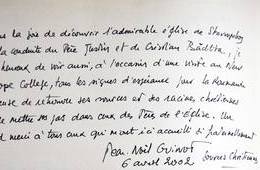 la joie de découvrir l'admirable église de Stavropoleos
la conduite du Père Justin et de Cristian Bădiliţă, je
heureux de voir aussi, à l'occasion d'une visite au New
Europe College, tous les signes d'espérance pour la Roumanie
euse de retrouver ses sources et ses racines chrétiennes
se mettre ses pas dans ceux des Pères de l'Église. Un
d merci à tous ceux qui m'ont ici accueilli si fraternellement
Jean-Noël Guinot
6 avril 2002 Sources Chrétiennes